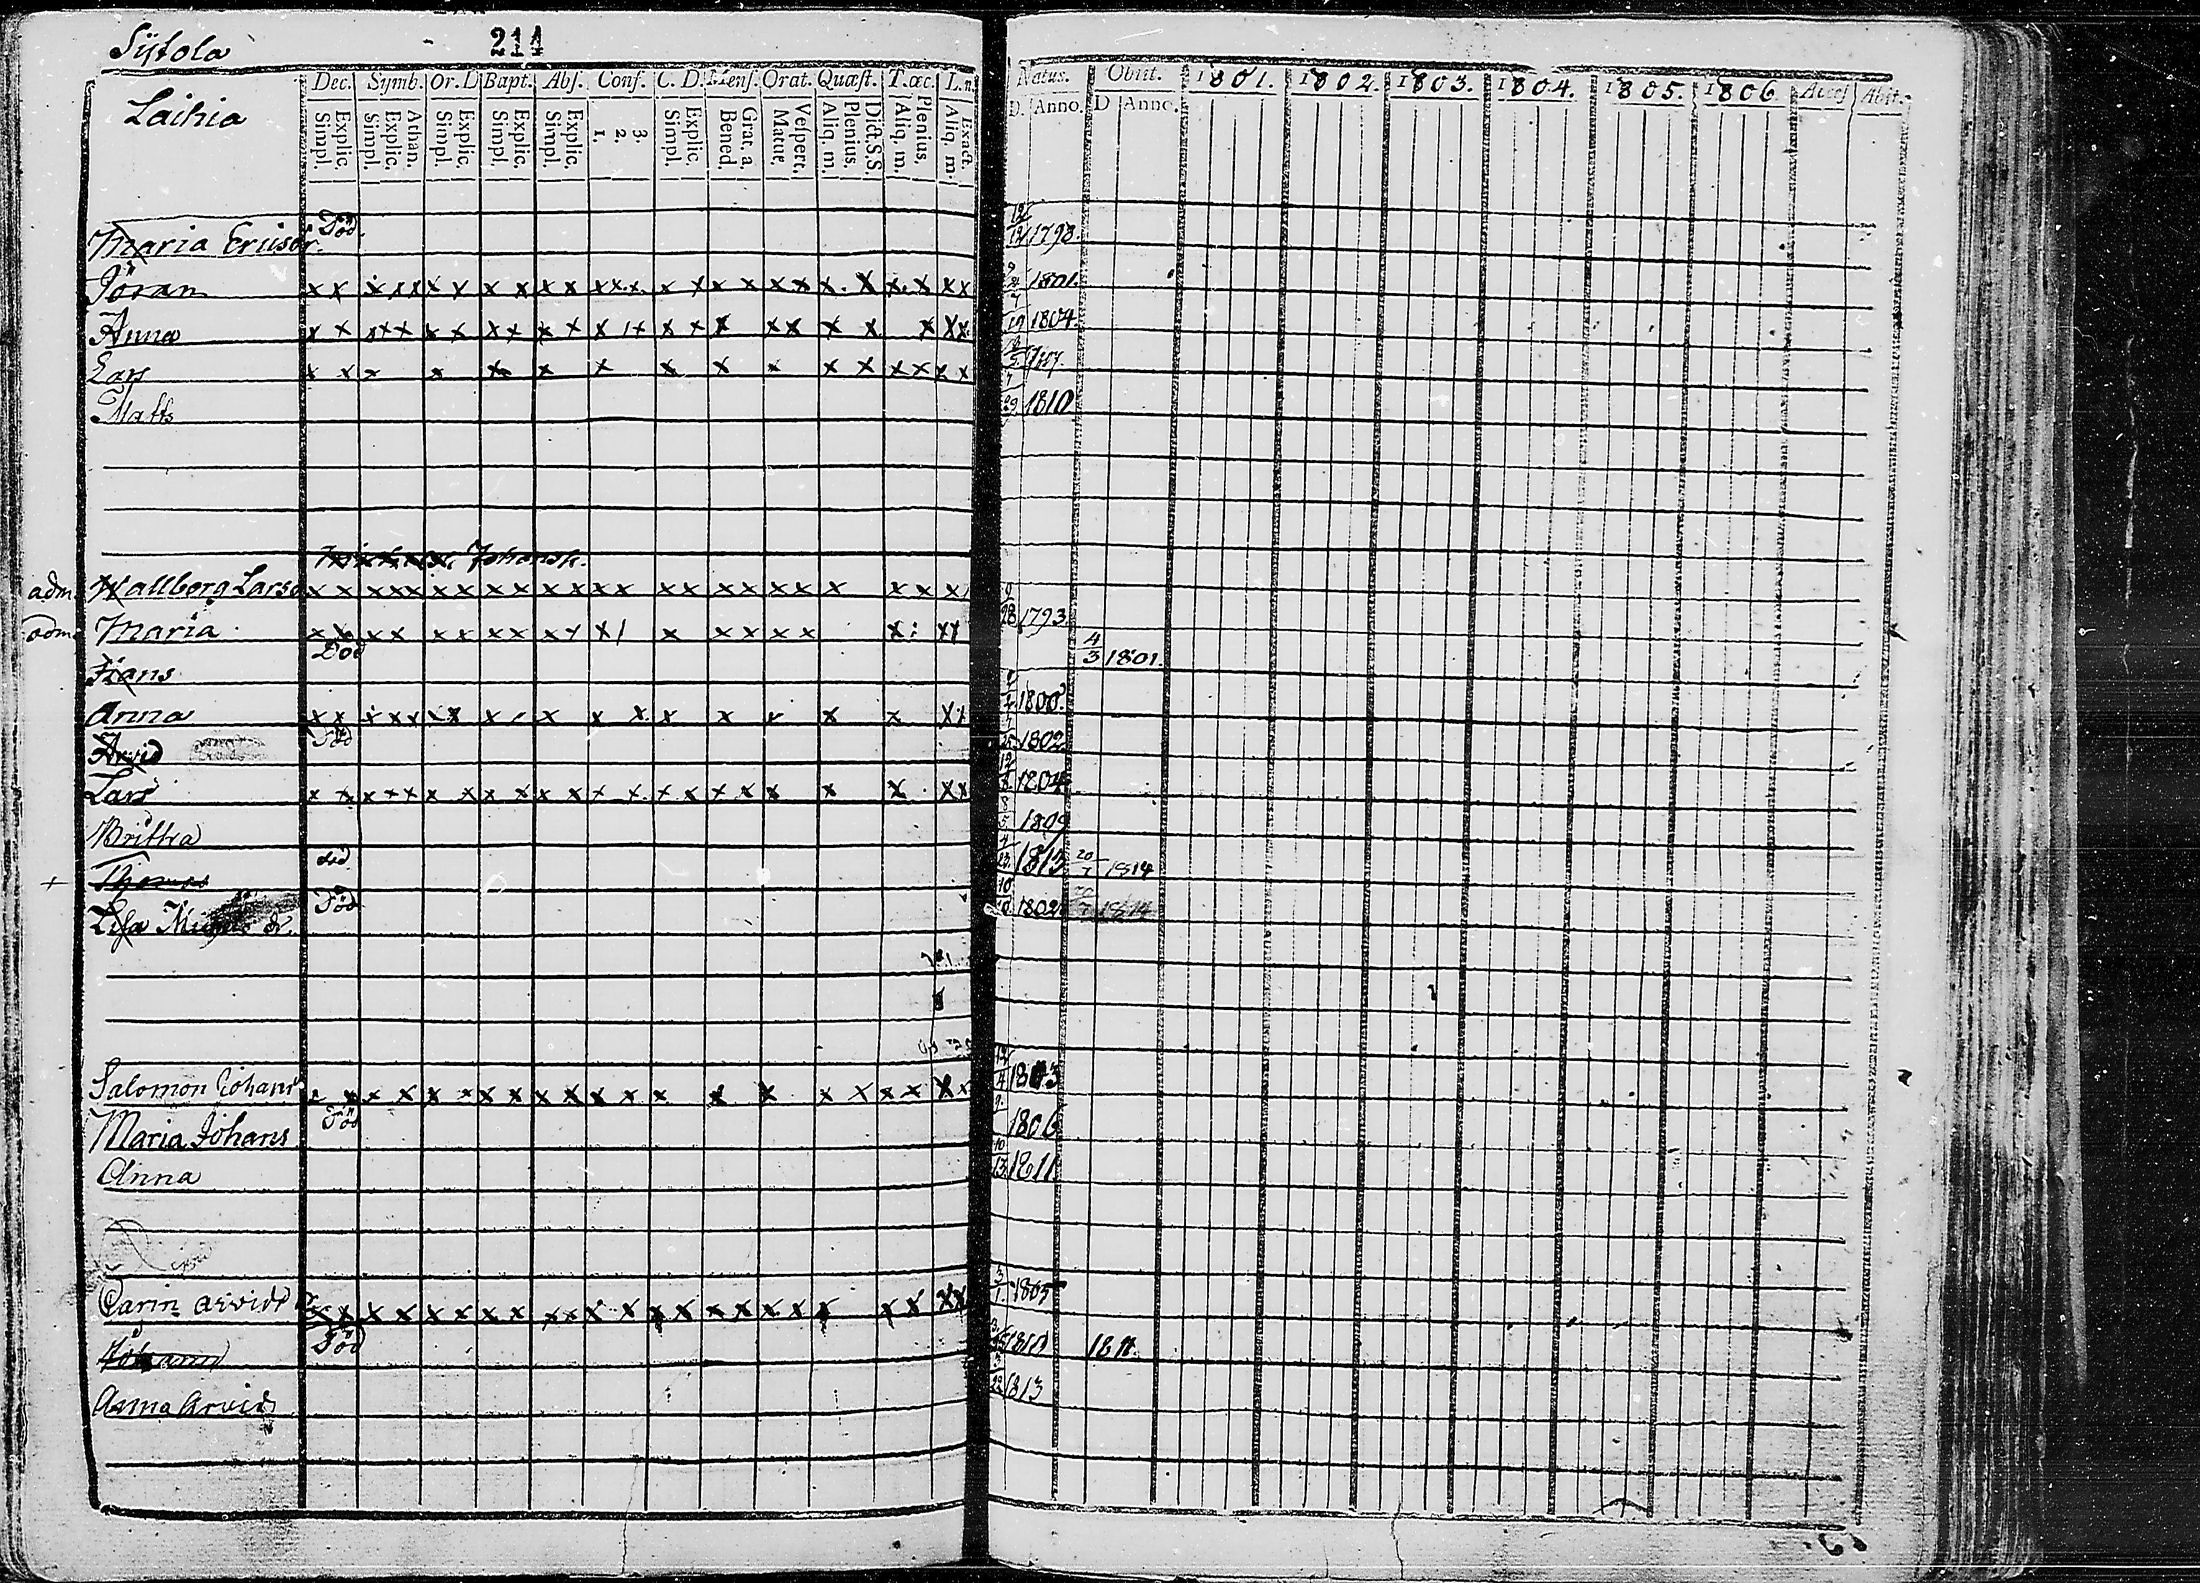 Sijtola
214
Laihia
Dec. Symb. Or. D Bapt. Abſ. Conf. C. D. Menſ. Orat. Quæſt. T. œc. L. n.
Simpl. Explic. Simpl. Explic. Athan. Simpl. Explic. Simpl. Explic. Simpl. Explic. 1. 2. 3. Simpl. Explic. Bened. Grat. a. Matut. Veſpert. Aliq. m. Plenius. Dict. S. S. Aliq. m. Plenius. Aliq. m. Exact.
Natus. Obiit. 1801. 1802. 1803. 1804. 1805. 1806 Acceſ Abit.
D. Anno. D Anno.
Maria Ericsdr. Död. 1798.
Jöran x x x x x x x x x x x x x x x x x x x x x x x x x x x 1801.
Anna x x x x x x x x x x x x x x x x x x x x x x x 1804.
Lars x x x x x x x x x x x x x x x x
Matts 29 1810
Johansk.
adm. Wallborg Lars x x x x x x x x x x x x x x x x x x x x x x x
adm. Maria x x x x x x x x x x x x x x x x x x x 9/28 1793.
Hans Död 4/3 1801.
Anna x x x x x x x x x x x x x x x x x x 1800.
Arvid Död 1802
Lars x x x x x x x x x x x x x x x x x x x x x x 12/8 1804
Brittha 8/5 1809
+ Thomas död 1813 20/7 1814
Lisa Död 1802
Salomon Johans x x x x x x x x x x x x x x x x x x x x x x 12/4 1803
Maria Johans Död 1806
Anna 10/13 1811
Carin Arvids x x x x x x x x x x x x x x x x x x x x x x 3/1 1805
Johann Död 1810 1811
Anna Arvids 22 1813